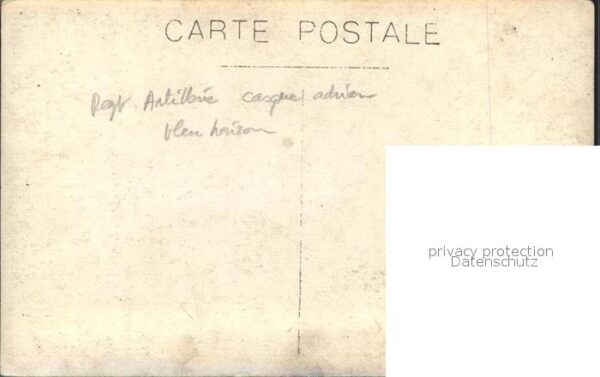 CARTE POSTALE
Regt Artillerie casque adrian
bleu horizon
privacy protection
Datenschutz